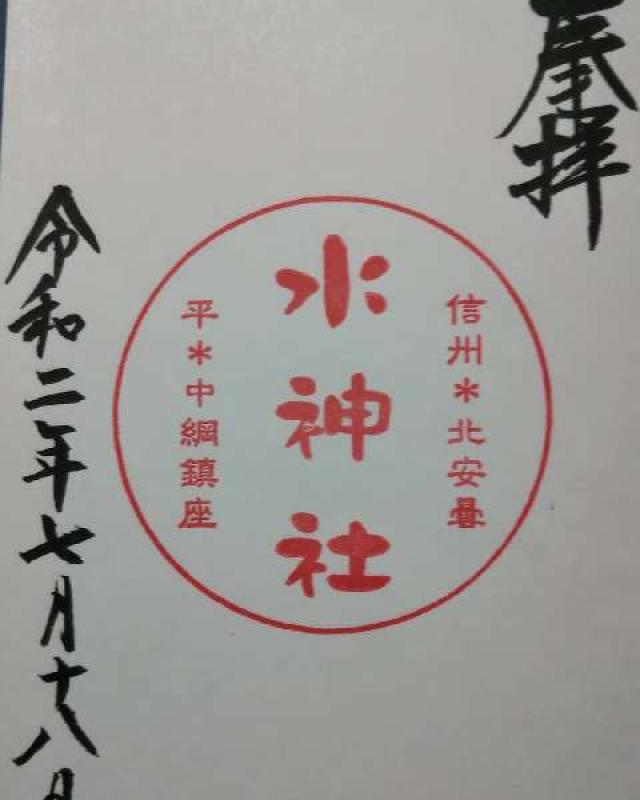 奉拝
信州＊北安曇
水神社
平＊中綱鎮座
令和二年七月十八日